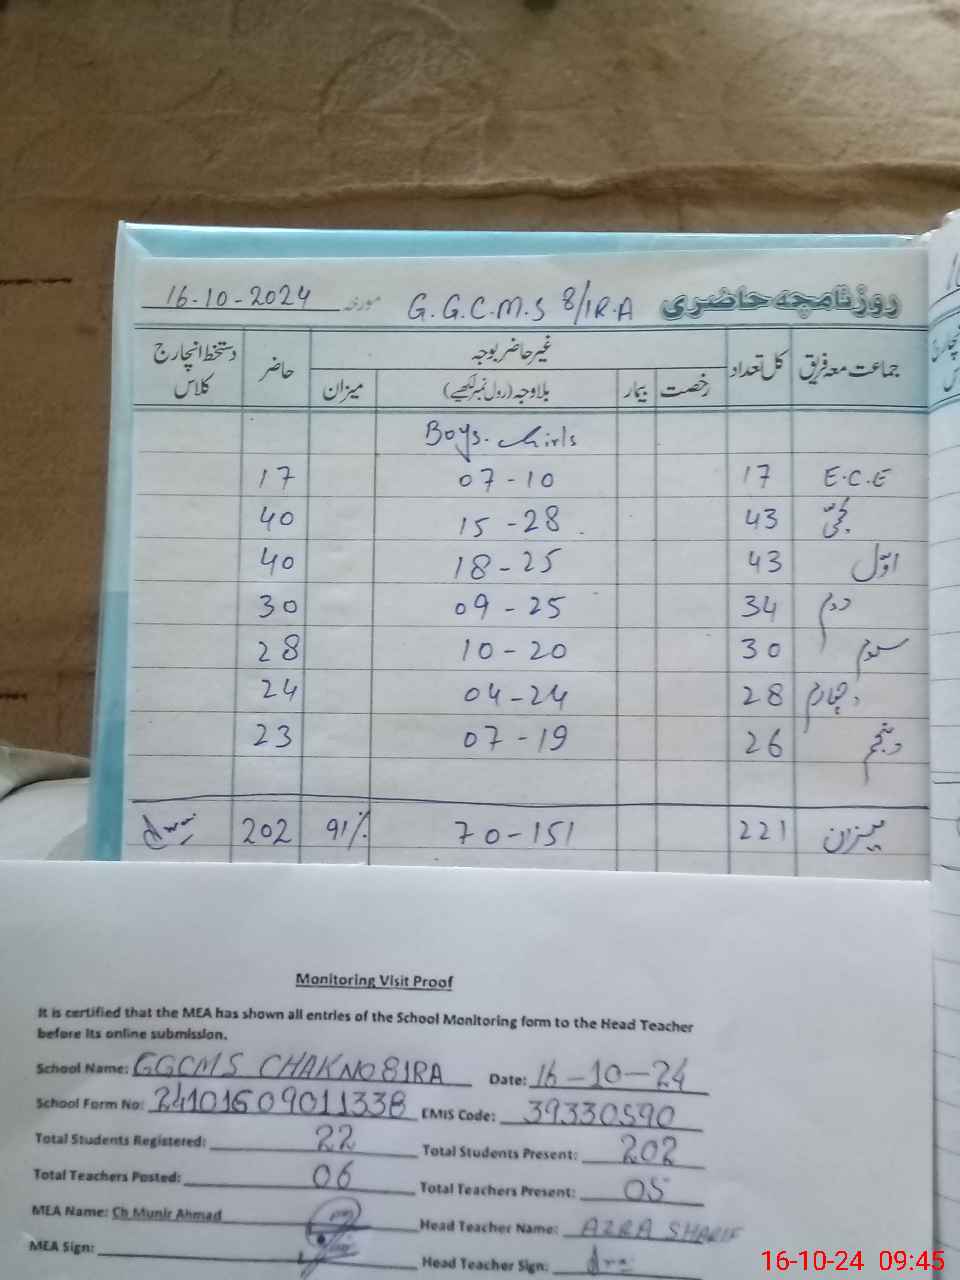 روزنامچہ حاضری G.G.C.M.S 8/1R.A مورخہ 16-10-2024
جماعت معہ فریق کل تعداد غیر حاضر بوجہ حاضر دستخط انچارج کلاس
رخصت بیمار بلاوجہ (رول نمبر لکھیے) میزان
Boys. Girls
E.C.E 17 07-10 17
کچی 43 15-28 40
اوّل 43 18-25 40
دوم 34 09-25 30
سوم 30 10-20 28
چہارم 28 04-24 24
پنجم 26 07-19 23
میزان 221 70-151 91% 202
Monitoring Visit Proof
It is certified that the MEA has shown all entries of the School Monitoring form to the Head Teacher
before its online submission.
School Name: GGCMS CHAK NO 81RA Date: 16-10-24
School Form No: 24101609011338 EMIS Code: 39330590
Total Students Registered: 22 Total Students Present: 202
Total Teachers Posted: 06 Total Teachers Present: 05
MEA Name: Ch Munir Ahmad Head Teacher Name: AZRA SHARIF
MEA Sign: Head Teacher Sign:
16-10-24 09:45